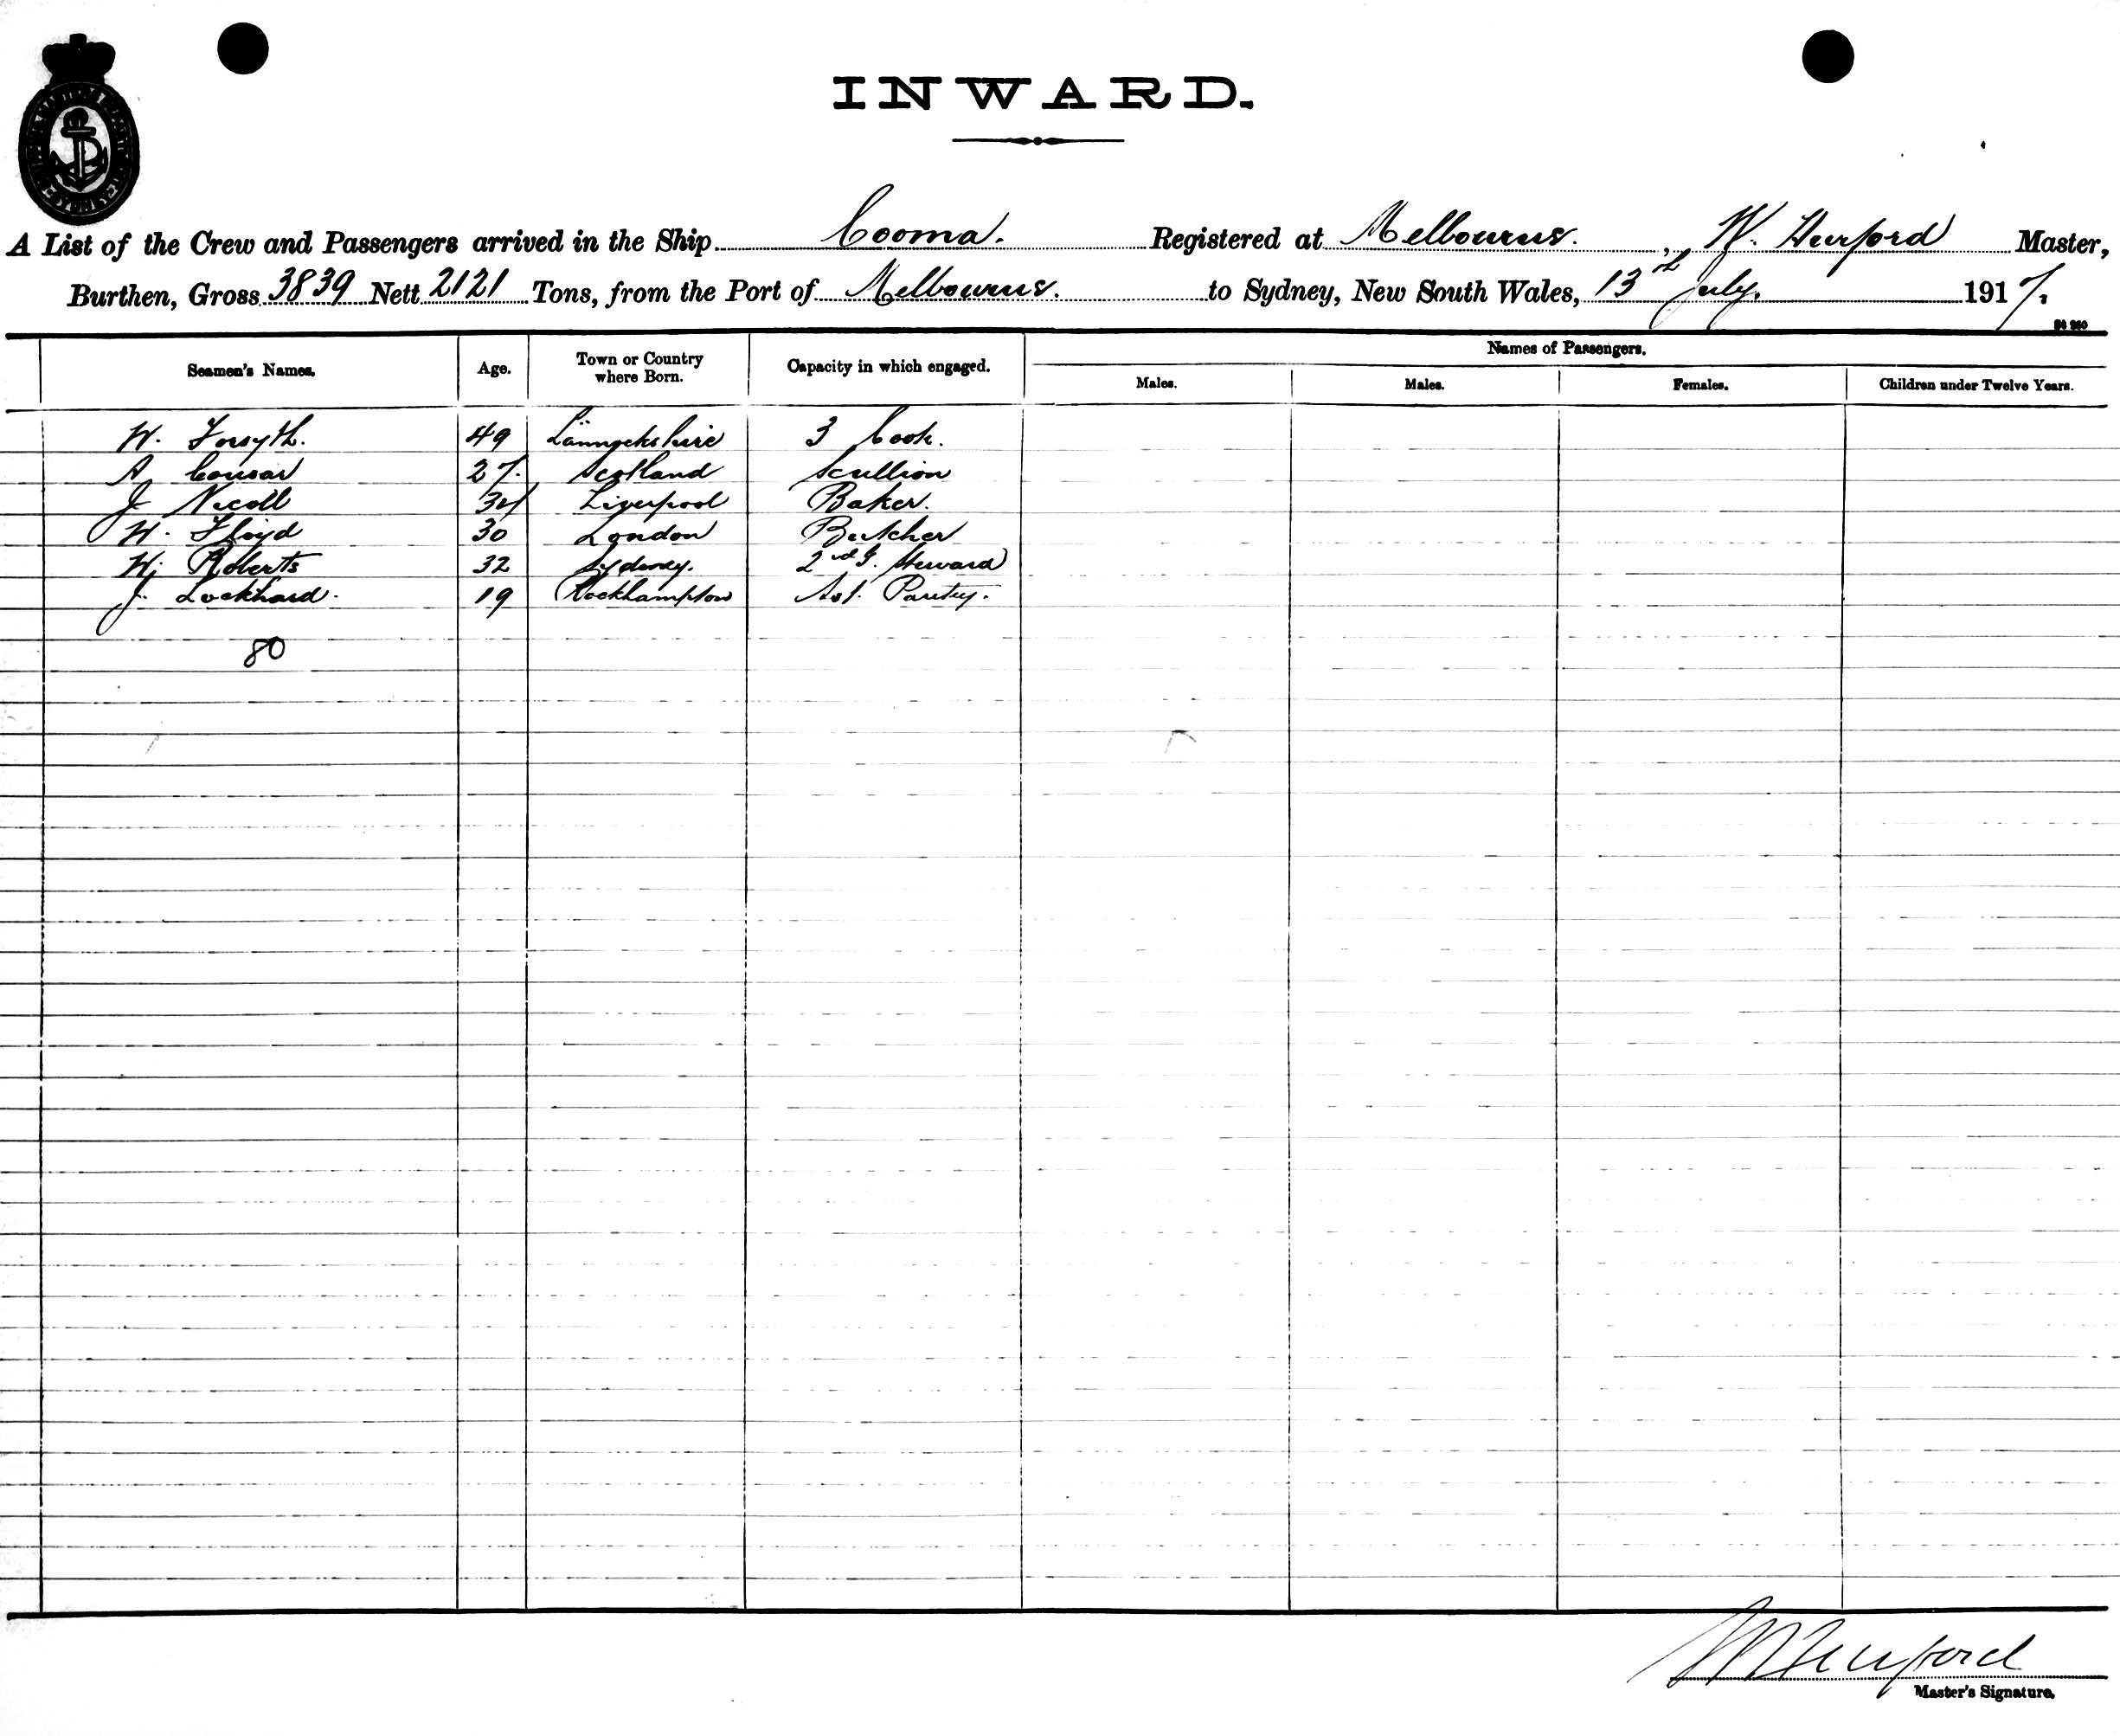 INWARD.
A List of the Crew and Passengers arrived in the Ship Cooma. Registered at Melbourne. , W. Hurford Master,
Burthen, Gross 3839 Nett 2121 Tons, from the Port of Melbourne. to Sydney, New South Wales, 13th July. 1917.
Seamen's Names. Age. Town or Country where Born. Capacity in which engaged. Names of Passengers.
Males. Males. Females. Children under Twelve Years.
W. Forsyth. 49 3 Cook.
A Cousar 27. Scotland Scullion
J Nicoll 34 Liverpool Baker.
W. Floyd 30 London Butcher
W. Roberts 32 Sydney. 2nd S. Steward
J. Lockhard. 19 Rockhampton Ast. Pantry.
80
Master's Signature.